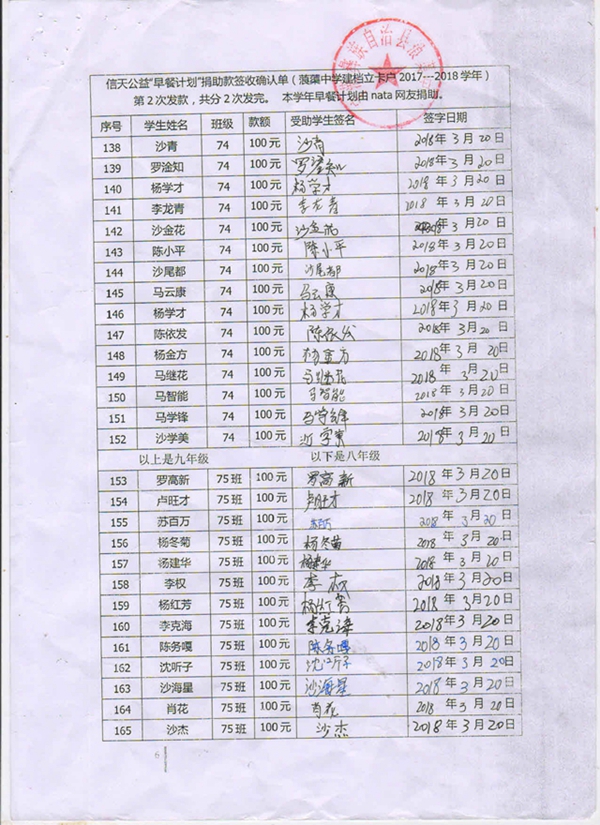 族自治县
信天公益"早餐计划"捐助款签收确认单（蒗蕖中学建档立卡户2017---2018学年）
第2次发款，共分2次发完。 本学年早餐计划由nata网友捐助。
序号 学生姓名 班级 款额 受助学生签名 签字日期
138 沙青 74 100元 沙青 2018年3月20日
139 罗淦知 74 100元 罗淦知 2018年3月20日
140 杨学才 74 100元 杨学才 2018年3月20日
141 李龙青 74 100元 李龙青 2018年3月20日
142 沙金花 74 100元 沙金花 2018年3月20日
143 陈小平 74 100元 陈小平 2018年3月20日
144 沙尾都 74 100元 沙尾都 2018年3月20日
145 马云康 74 100元 马云康 2018年3月20日
146 杨学才 74 100元 杨学才 2018年3月20日
147 陈依发 74 100元 陈依发 2018年3月20日
148 杨金方 74 100元 杨金方 2018年3月20日
149 马继花 74 100元 马继花 2018年3月20日
150 马智能 74 100元 马智能 2018年3月20日
151 马学锋 74 100元 马学锋 2018年3月20日
152 沙学美 74 100元 沙学美 2018年3月20日
以上是九年级 以下是八年级
153 罗高新 75班 100元 罗高新 2018年3月20日
154 卢旺才 75班 100元 卢旺才 2018年3月20日
155 苏百万 75班 100元 苏百万 2018年3月20日
156 杨冬菊 75班 100元 杨冬菊 2018年3月20日
157 汤建华 75班 100元 建华 2018年3月20日
158 李权 75班 100元 李权 2018年3月20日
159 杨红芳 75班 100元 杨红芳 2018年3月20日
160 李克海 75班 100元 李克海 2018年3月20日
161 陈务嘎 75班 100元 陈务嘎 2018年3月20日
162 沈听子 75班 100元 沈听子 2018年3月20日
163 沙海星 75班 100元 沙海星 2018年3月20日
164 肖花 75班 100元 肖花 2018年3月20日
165 沙杰 75班 100元 沙杰 2018年3月20日
6